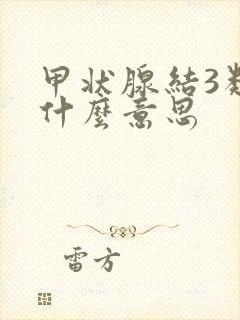 甲状腺結3
什麼意思
雷方